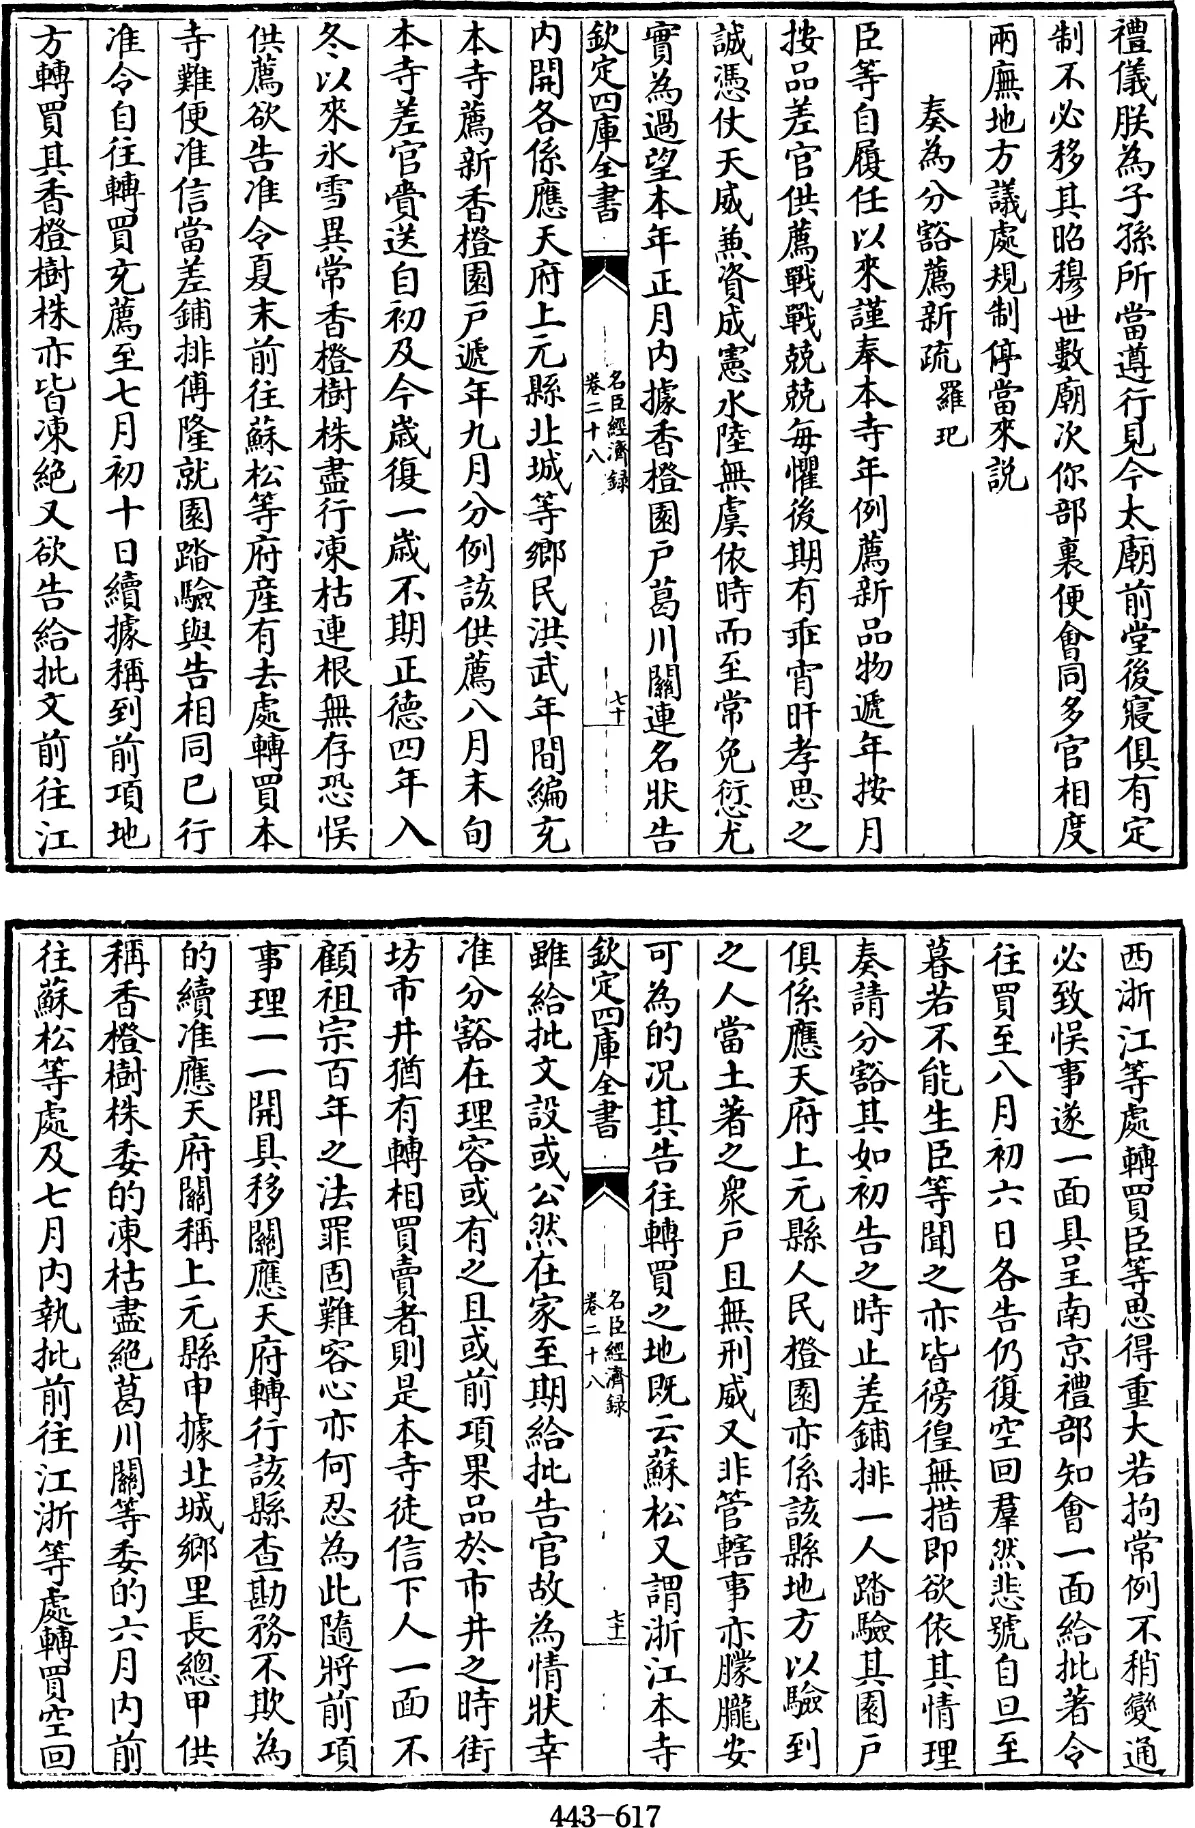 禮儀朕為子孫所當遵行見今太廟前堂後寢俱有定
制不必移其昭穆世數廟次你部裏便會同多官相度
兩廡地方議處規制停當來説
奏為分豁薦新疏 羅玘
臣等自履任以來謹奉本寺年例薦新品物遞年按月
按品差官供薦戰戰兢兢每懼後期有乖宵旰孝思之
誠憑仗天威兼資成憲水陸無虞依時而至常免愆尤
實為過望本年正月内據香橙園戸葛川關連名狀告
欽定四庫全書
名臣經濟録
卷二十八
七十
内開各係應天府上元縣北城等鄉民洪武年間編充
本寺薦新香橙園戸遞年九月分例該供薦八月末旬
本寺差官賫送自初及今歳復一歳不期正德四年入
冬以來氷雪異常香橙樹株盡行凍枯連根無存恐悞
供薦欲告准令夏末前往蘇松等府産有去處轉買本
寺難便准信當差鋪排傅隆就園踏驗與告相同已行
准令自往轉買充薦至七月初十日續據稱到前項地
方轉買其香橙樹株亦皆凍絶又欲告給批文前往江
西浙江等處轉買臣等思得重大若拘常例不稍變通
必致悞事遂一面具呈南京禮部知會一面給批著令
往買至八月初六日各告仍復空回羣然悲號自旦至
暮若不能生臣等聞之亦皆徬徨無措即欲依其情理
奏請分豁其如初告之時止差鋪排一人踏驗其園戸
俱係應天府上元縣人民橙園亦係該縣地方以驗到
之人當土著之衆戸且無刑威又非管轄事亦朦朧安
可為的况其告往轉買之地既云蘇松又謂浙江本寺
欽定四庫全書
名臣經濟録
卷二十八
七十一
雖給批文設或公然在家至期給批告官故為情狀幸
准分豁在理容或有之且或前項果品於市井之時街
坊市井猶有轉相買賣者則是本寺徒信下人一面不
顧祖宗百年之法罪固難容心亦何忍為此隨將前項
事理一一開具移關應天府轉行該縣查勘務不欺為
的續准應天府關稱上元縣申據北城鄉里長總甲供
稱香橙樹株委的凍枯盡絶葛川關等委的六月内前
往蘇松等處及七月内執批前往江浙等處轉買空回
443-617